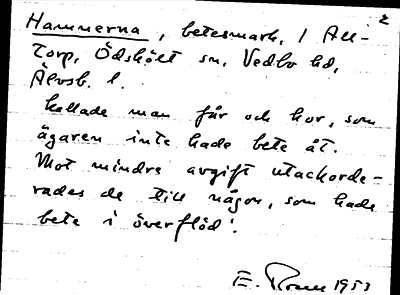 Hammerna, betesmark, i All-
torp, Ödskölt sn, Vedbo hd,
Älvsb. l.
kallade man får och kor, som
ägaren inte hade bete åt.
Mot mindre avgift utackorde-
rades de till någon, som hade
bete i överflöd.
E. 1953